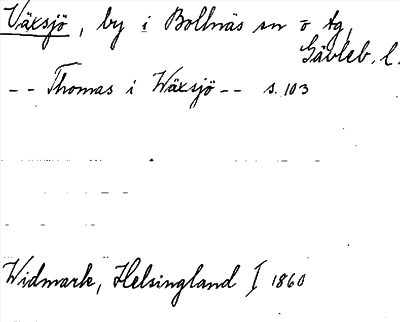 Växsjö, by i Bollnäs sn o tg,
Gävleb. l.
-- Thomas i Wäxsjö -- s. 103
Widmark, Helsingland I 1860